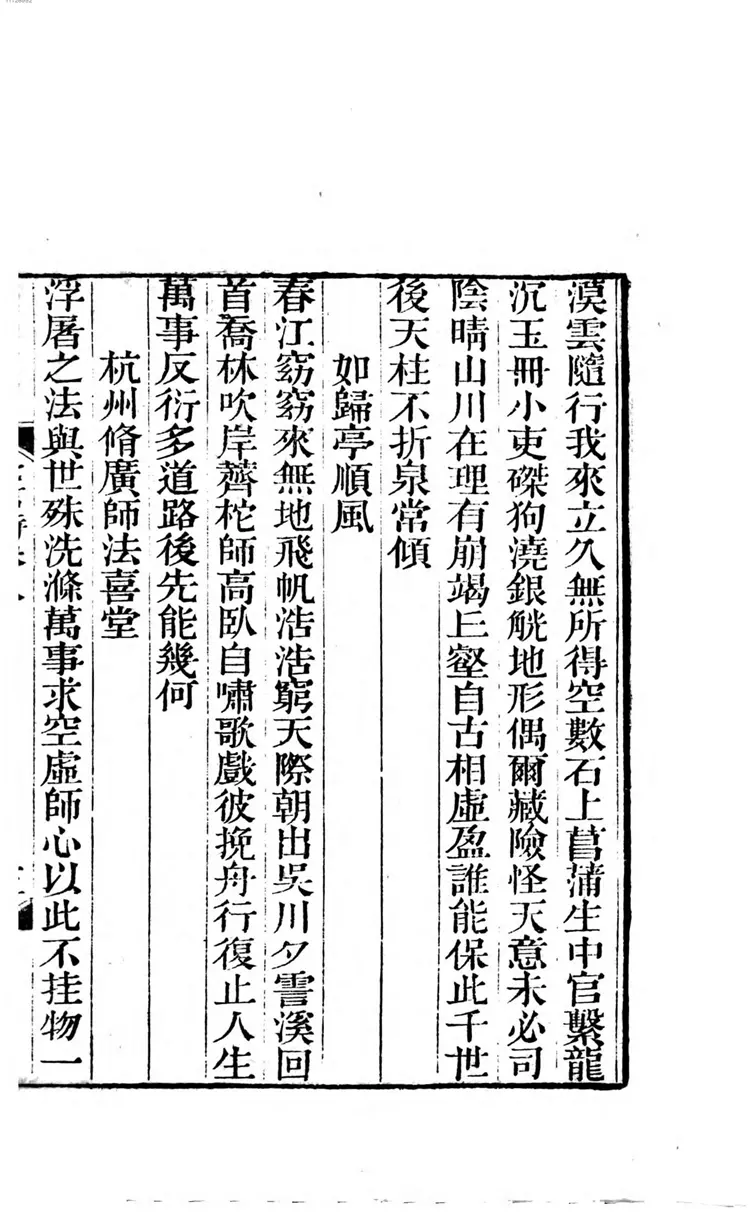 漠雲隨行我來立久無所得空數石上菖蒲生中官繫龍
沉玉冊小吏磔狗澆銀觥地形偶爾藏險怪天意未必司
陰晴山川在理有崩竭丘壑自古相虛盈誰能保此千世
後天柱不折泉常傾
如歸亭順風
春江窈窈來無地飛帆浩浩窮天際朝出吳川夕霅溪回
首喬林吹岸薺柁師高臥自嘯歌戲彼挽舟行復止人生
萬事反衍多道路後先能幾何
杭州脩廣師法喜堂
浮屠之法與世殊洗滌萬事求空虛師心以此不挂物一